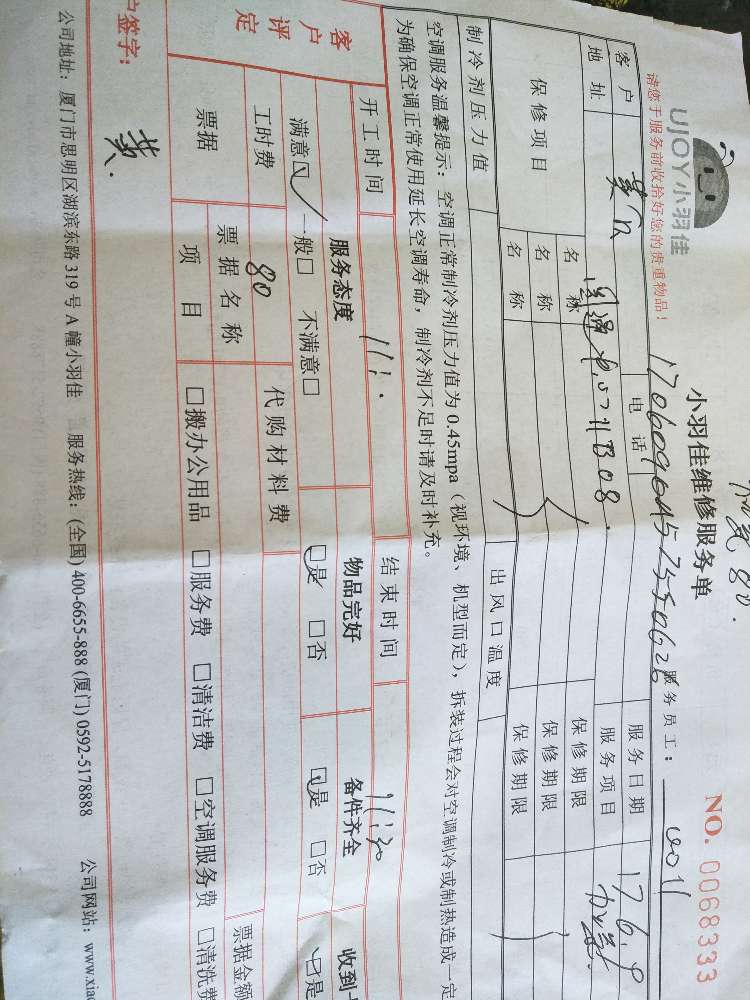 UJOY小羽佳
请您于服务前收拾好您的贵重物品！
小羽佳维修服务单
NO. 0068333
服务员工：
客户
电话
服务日期 17.6.9
地址
服务项目
保修项目
名称
保修期限
名称
保修期限
名称
保修期限
制冷剂压力值
出风口温度
空调服务温馨提示：空调正常制冷剂压力值为0.45mpa（视环境、机型而定），拆装过程会对空调制冷或制热造成一定
为确保空调正常使用延长空调寿命，制冷剂不足时请及时补充。
开工时间 11:
结束时间 11:30
客户评定
服务态度
物品完好
备件齐全
收到
满意☑ 一般□ 不满意□
☑是 □否
☑是 □否
☑是
工时费 80
代购材料费
票据
票据名称
票据金额
项目
□搬办公用品 □服务费 □清洁费 □空调服务费 □清洗费
户签字：
黄
公司地址：厦门市思明区湖滨东路319号A幢小羽佳 服务热线：(全国) 400-6655-888 (厦门) 0592-5178888 公司网站：www.xia